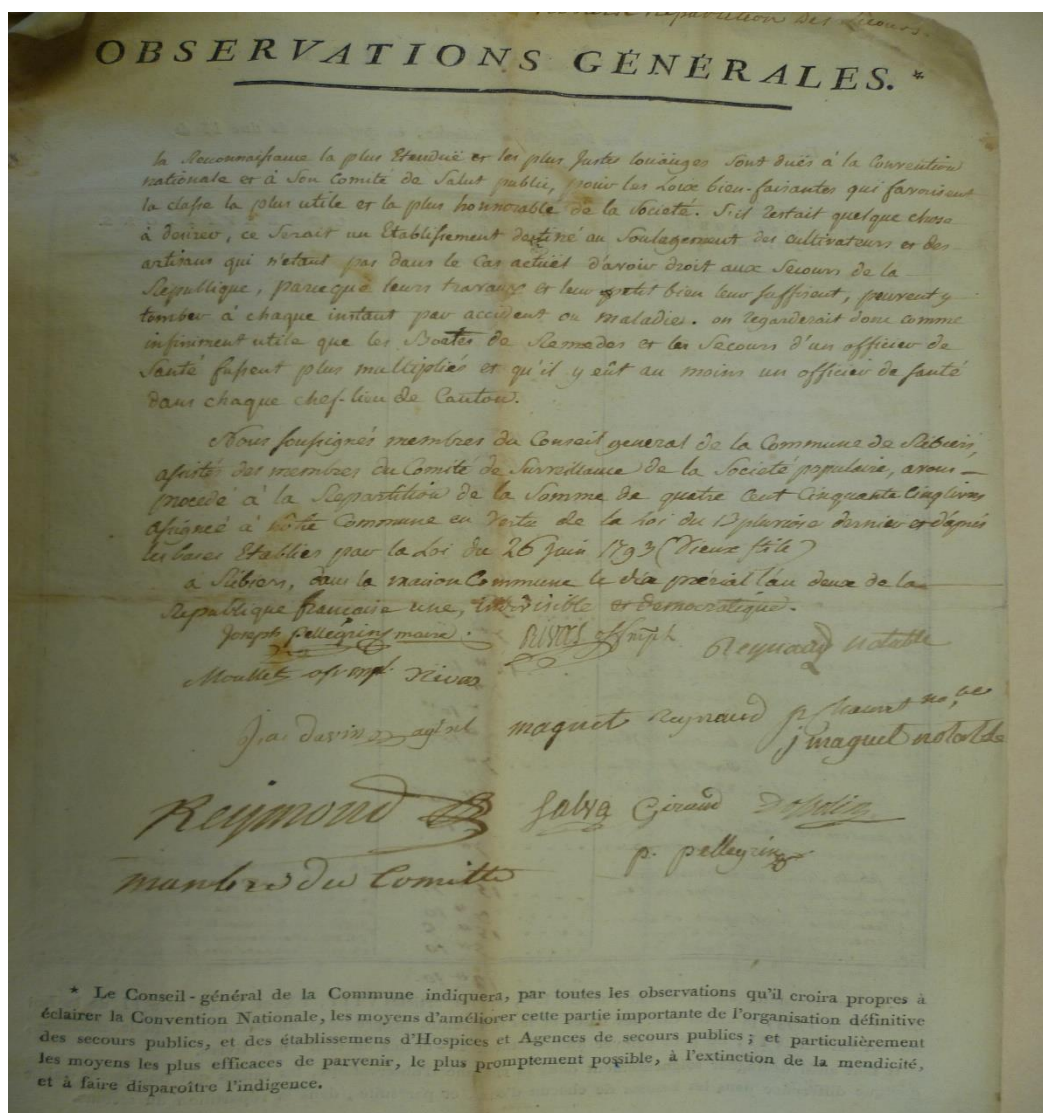 Répartition des Secours.
OBSERVATIONS GÉNÉRALES. *
la Reconnaissance la plus Etenduë et les plus Justes louanges Sont duës à la Convention
nationale et à Son Comité de Salut public, pour les Loix bien-faisantes qui favorisent
la classe la plus utile et la plus honnorable de la Societé. S'il restait quelque chose
à desirer, ce Serait un Etablissement destiné au Soulagement des cultivateurs et des
artisans qui n'etant pas dans le Cas actuël d'avoir droit aux Secours de la
Republique, parceque leurs travaux et leur petit bien leur suffisent, peuvent y
tomber à chaque instant par accident ou maladies. on regarderait donc comme
infiniment utile que les Boetes de Remedes et les Secours d'un officier de
Santé fussent plus multipliés et qu'il y eût au moins un officier de santé
dans chaque chef-lieu de Canton.
Nous soussignés membres du Conseil general de la Commune de Ribiers,
assistés des membres du Comité de Surveillance de la Societé populaire, avons
procedé à la Repartition de la Somme de quatre Cent Cinquante Cinq livres
assignée à notre Commune en Vertu de la Loi du 13 pluviose dernier et d'après
les bases Etablies par la Loi du 26 Juin 1793 (Vieux stile)
a Ribiers, dans la maison Commune le dix prérial l'an deux de la
Republique francaise une, indivisible et democratique.
Joseph pellegrin maire. Rivas off mpl Reynaud notable
Moullet of mpl. Rivas
Jac davin agent maquet Reynaud p Chauvet no.ble
j maquet notable
Reymond Salva Giraud
p. pellegrin
manbre du Comitte
* Le Conseil-général de la Commune indiquera, par toutes les observations qu'il croira propres à
éclairer la Convention Nationale, les moyens d'améliorer cette partie importante de l'organisation définitive
des secours publics, et des établissemens d'Hospices et Agences de secours publics ; et particulièrement
les moyens les plus efficaces de parvenir, le plus promptement possible, à l'extinction de la mendicité,
et à faire disparoître l'indigence.